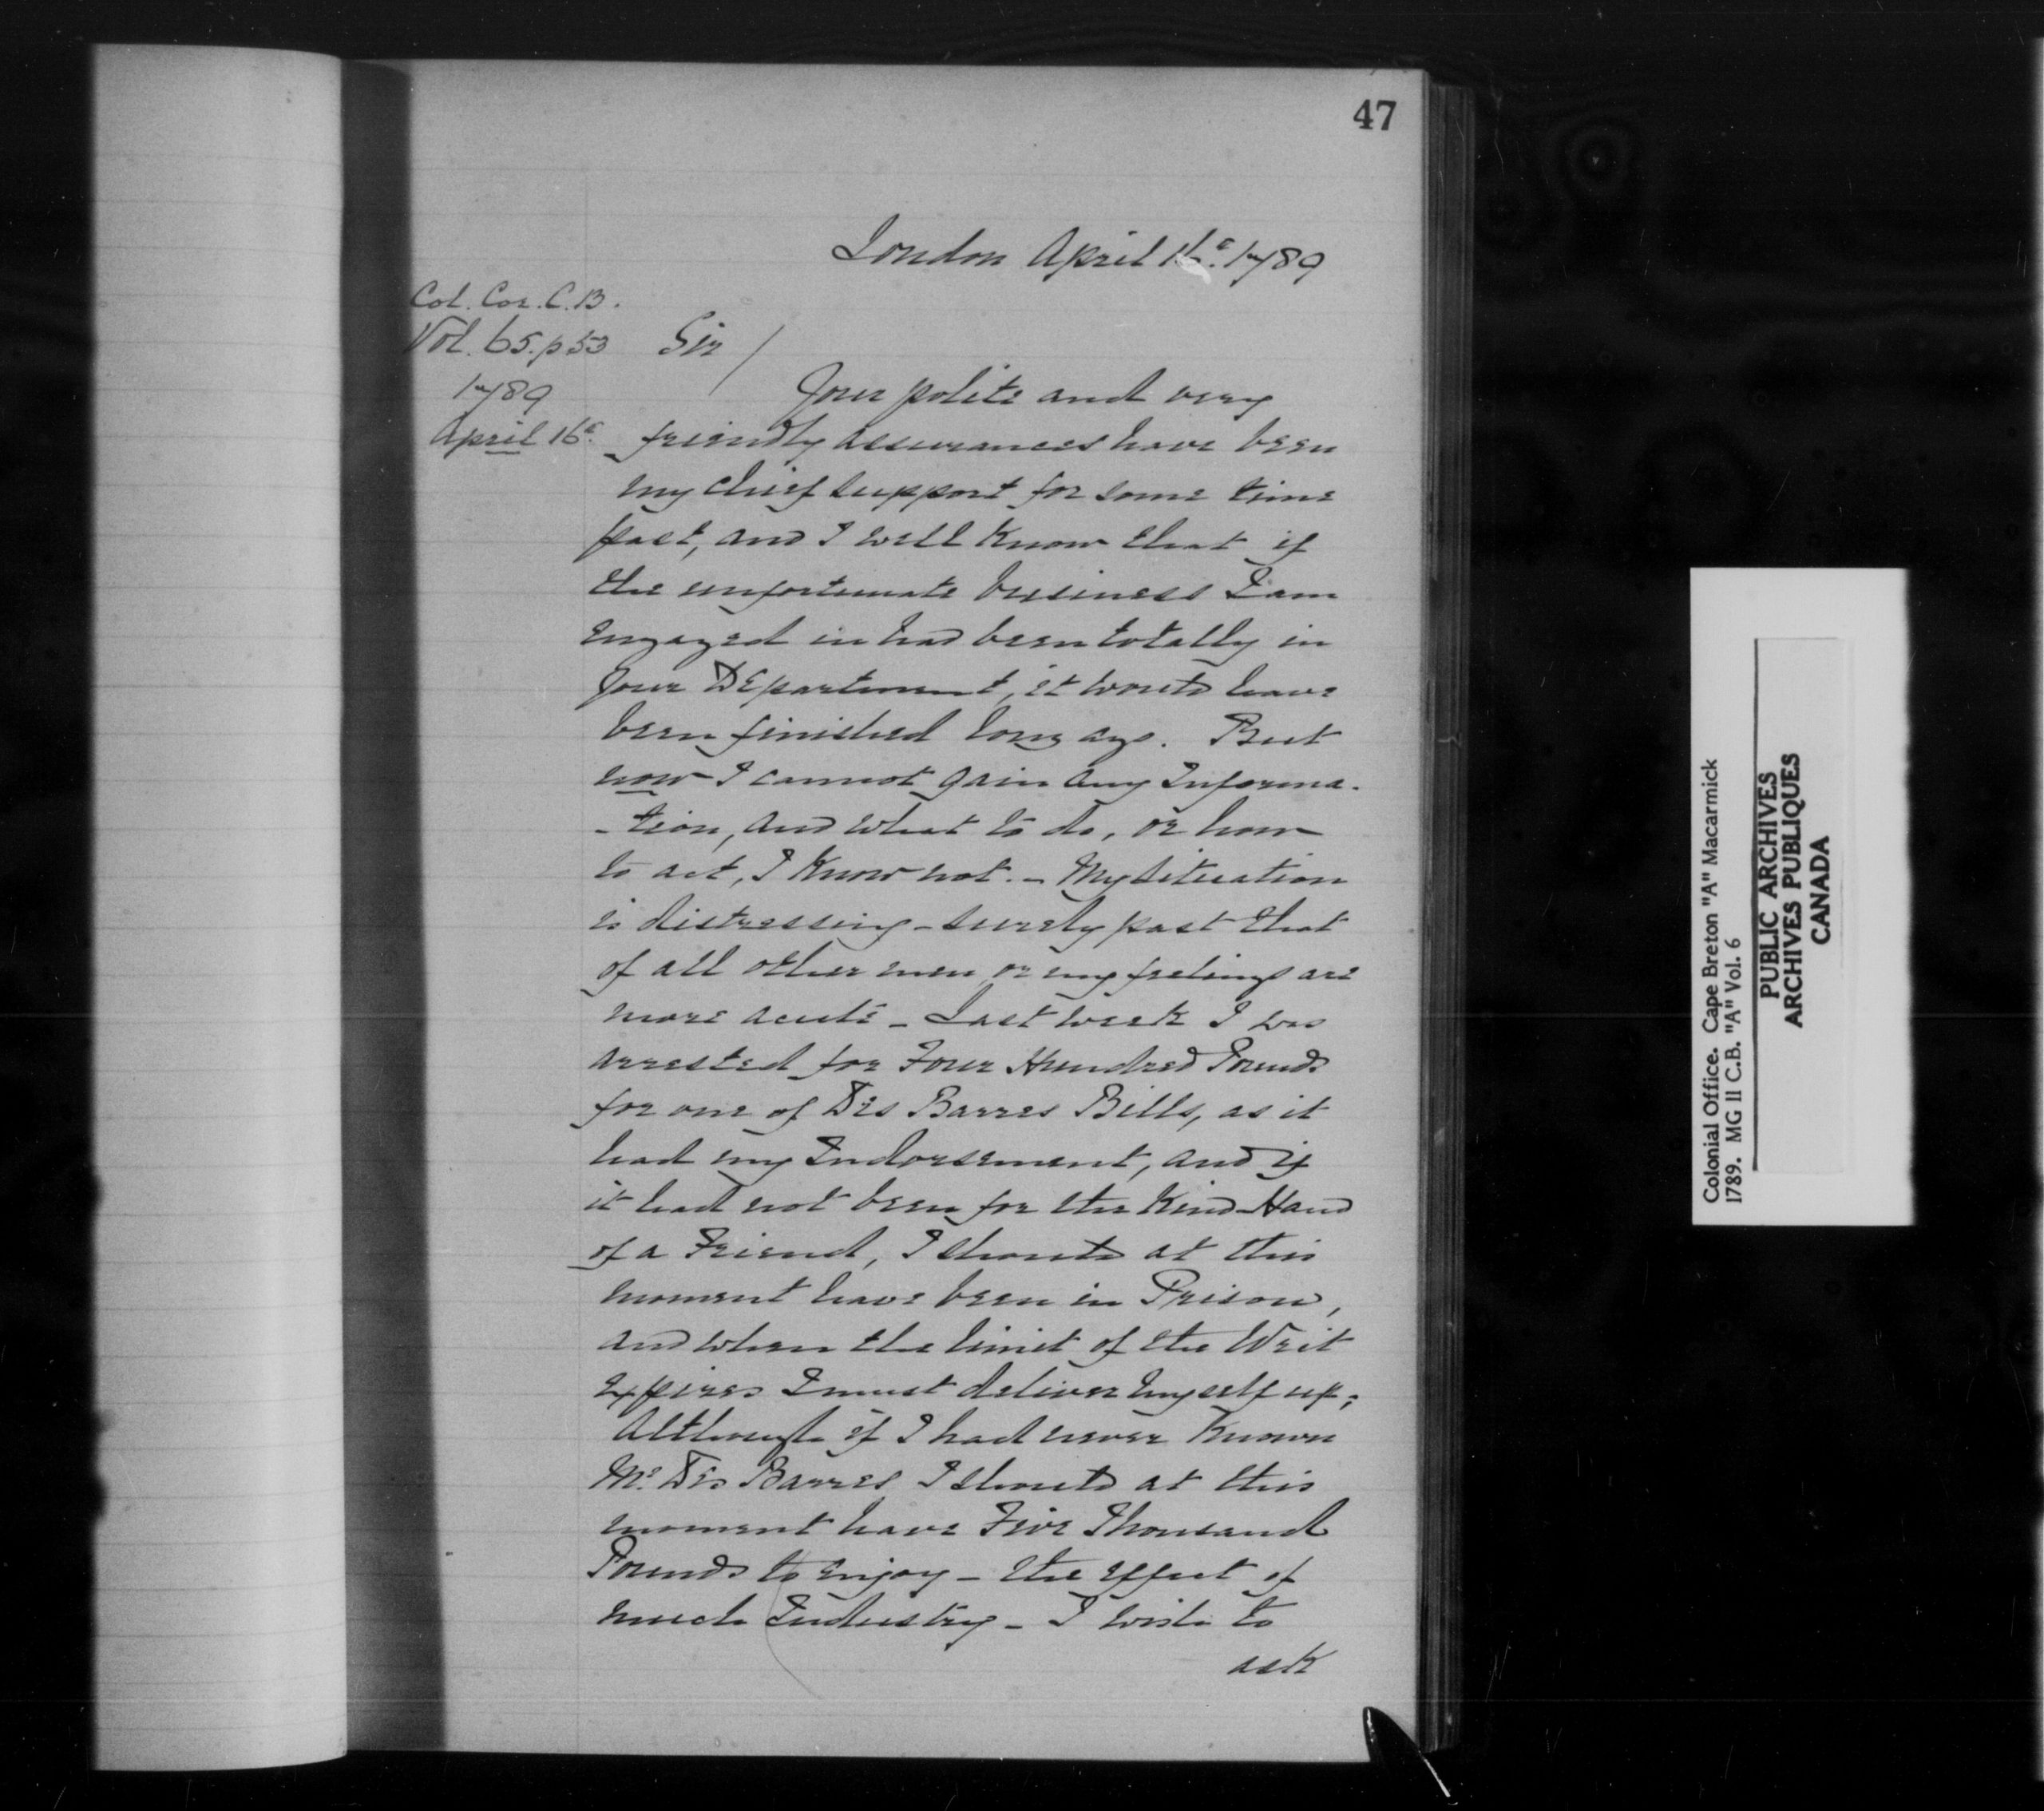 47
London April 16th. 1789
Col. Cor. C.B.
Vol. 65. p 53
1789
April 16th.
Sir /
Your polite and very
friendly assurances have been
my chief support for some time
past, and I well know that if
the unfortunate business I am
engaged in had been totally in
your Department, it would have
been finished long ago. But
now I cannot gain any Informa-
-tion, and what to do, or how
to act, I know not. - My situation
is distressing - surely past that
of all other men or my feelings are
more acute - Last week I was
arrested for Four Hundred Pounds
for one of Des Barres Bills, as it
had my Indorsement, and if
it had not been for the Kind Hand
of a Friend, I should at this
moment have been in Prison,
and when the limit of the Writ
expires I must deliver myself up;
Although if I had never known
Mr. Des Barres I should at this
moment have Five Thousand
Pounds to enjoy - the effect of
much Industry - I wish to
ask
Colonial Office. Cape Breton "A" Macarmick
1789. MG 11 C.B. "A" Vol. 6
PUBLIC ARCHIVES
ARCHIVES PUBLIQUES
CANADA